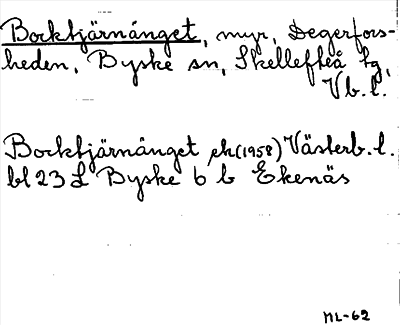 Bocktjärnånget, myr, Degerfors-
heden, Byske sn, Skellefteå tg,
Vb.l.
Bocktjärnånget ek(1958) Västerb.l.
bl 23 L Byske 6 b Ekenäs
ML-62